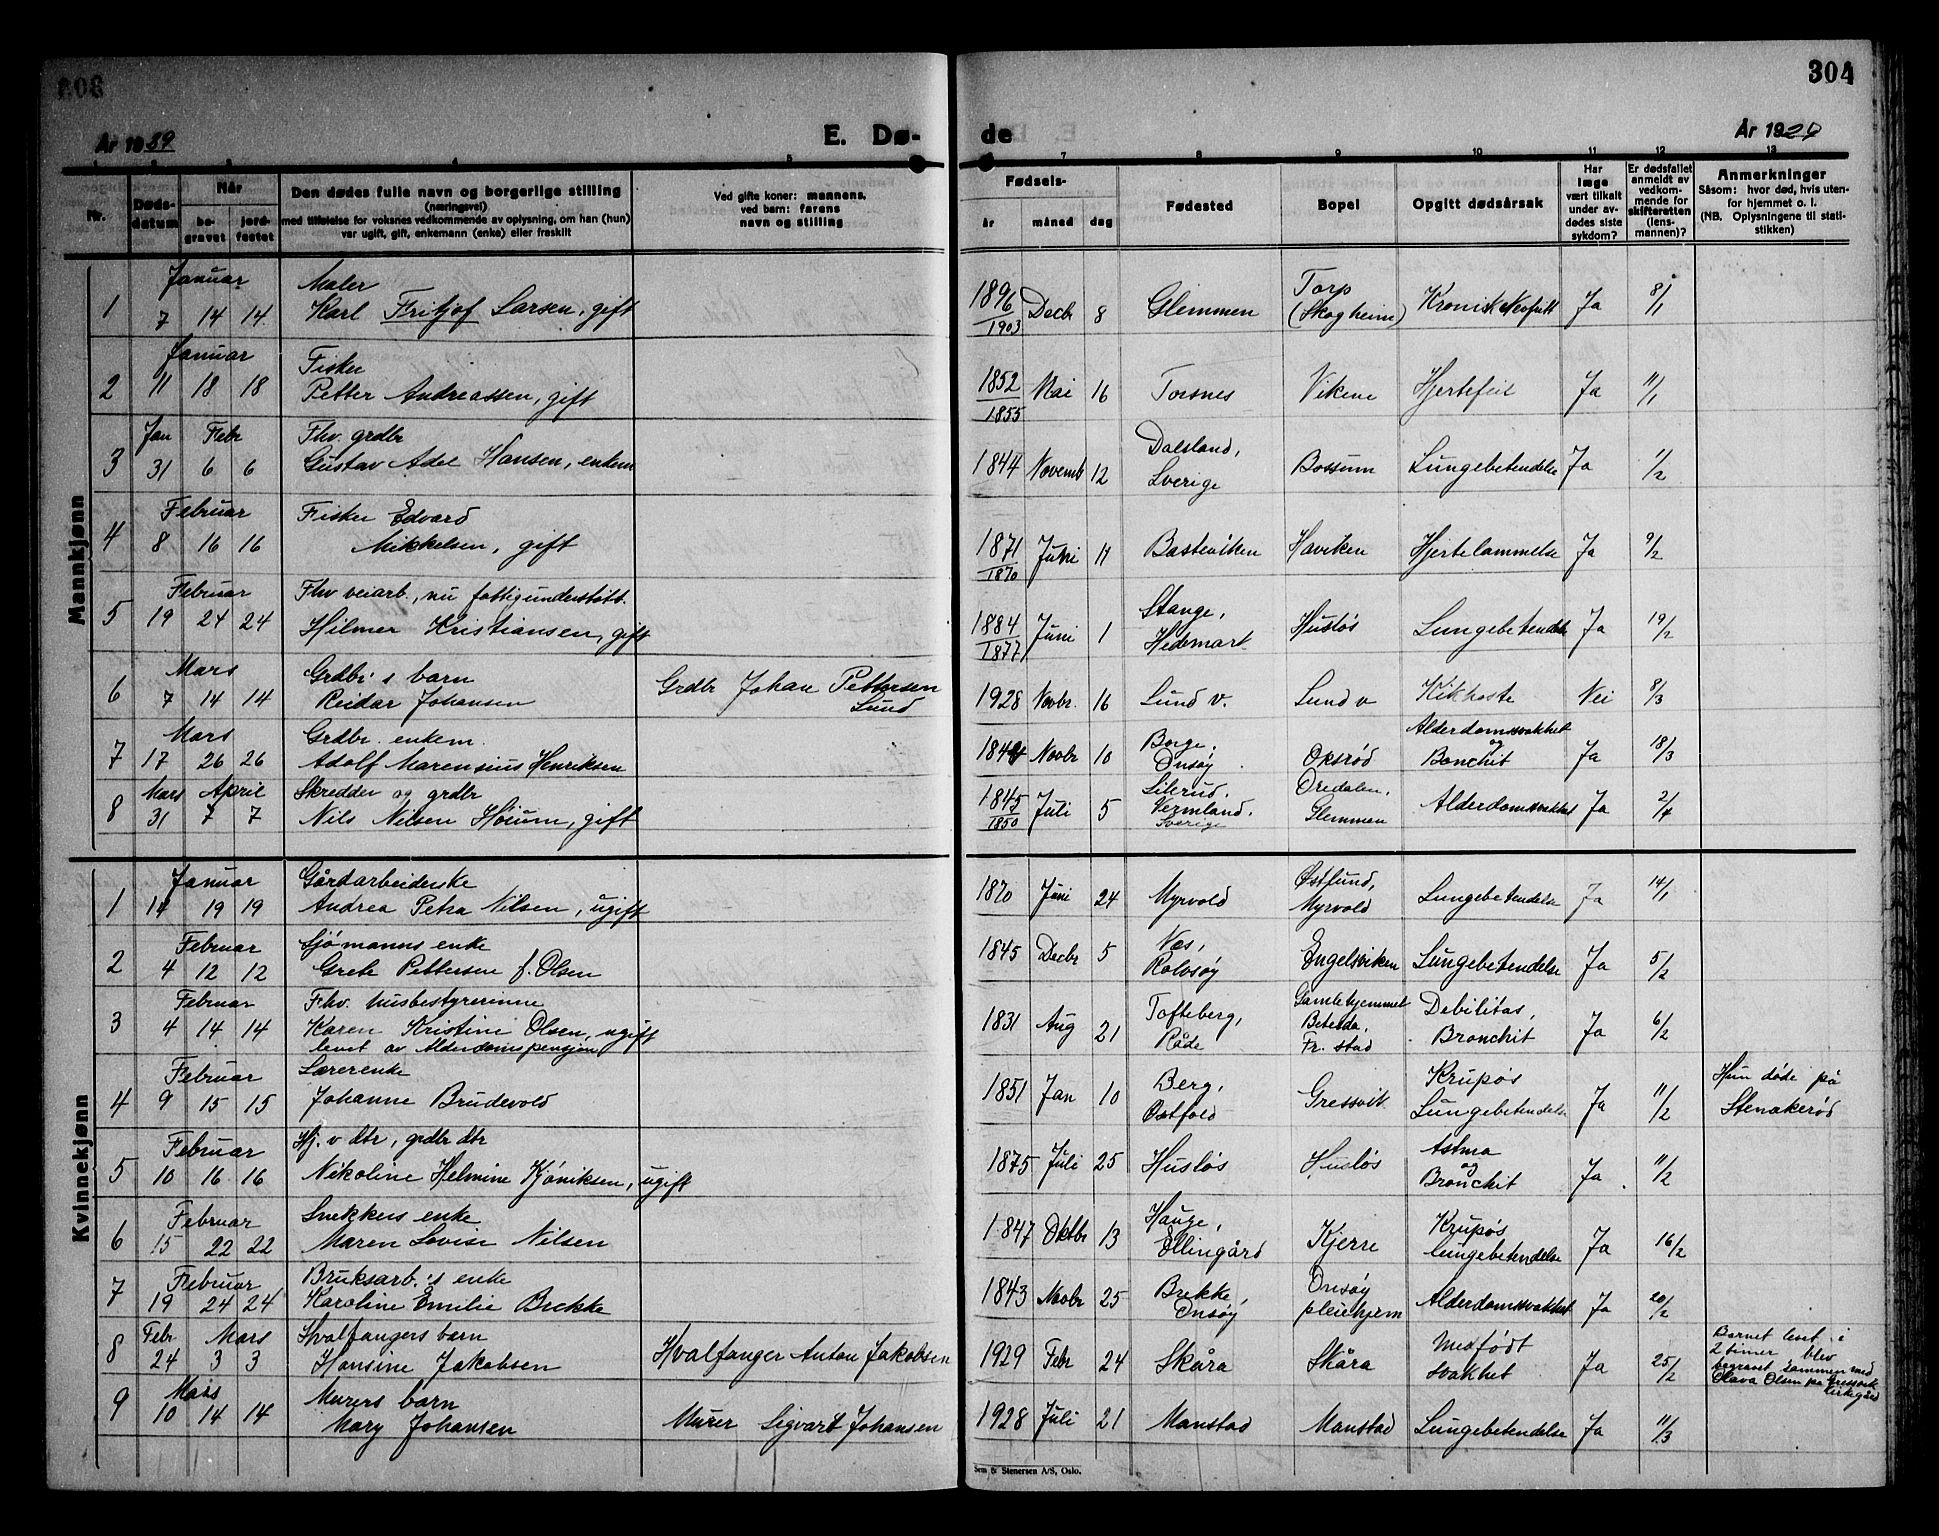 304
År 1929
E. Dø-
de
År 1929
Nr.
Døds-
datum
Når
be-
gravet
jord-
festet
Den dødes fulle navn og borgerlige stilling
(næringsvei)
med tilføielse for voksnes vedkommende av oplysning, om han (hun)
var ugift, gift, enkemann (enke) eller fraskilt
Ved gifte koner: mannens,
ved barn: farens
navn og stilling
7 8 9 10 11 12 13
Fødsels-
år måned dag
Fødested
Bopel
Opgitt dødsårsak
Har
læge
vært tilkalt
under av-
dødes siste
sykdom?
Er dødsfallet
anmeldt av
vedkom-
mende for
skifteretten
(lens-
mannen)?
Anmerkninger
Såsom: hvor død, hvis uten-
for hjemmet o. l.
(NB. Oplysningene til stati-
stikken)
Mannkjønn
1 Januar 7 14 14
Maler
Karl Fritjof Larsen, gift
1896/1903 Decbr 8 Glemmen Torp (Skogheim) Kronisk Nefritt Ja 8/1
2 Januar 11 18 18
Fisker
Petter Andreassen, gift
1852/1855 Mai 16 Torsnes Vikene Hjertefeil Ja 11/1
3 Jan 31 Febr 6 6
Fhv. grdbr
Gustav Adel Hansen, enkem
1844 Novemb 12 Dalsland, Sverige Bossum Lungebetendelse Ja 1/2
4 Februar 8 16 16
Fisker Edvard
Mikkelsen, gift
1871/1870 Juni 11 Basteviken Haviken Hjertelammelse Ja 9/2
5 Februar 19 24 24
Fhv veiarb., nu fattigunderstøtt.
Hilmer Kristiansen, gift
1884/1877 Juni 1 Stange, Hedemark Husløs Lungebetendelse Ja 19/2
6 Mars 7 14 14
Grdbr's barn
Reidar Johansen
Grdbr Johan Pettersen
Lund
1928 Novbr. 16 Lund v. Lund v Kikhoste Nei 8/3
7 Mars 17 26 26
Grdbr. enkem.
Adolf Marensius Henriksen
1844 Novbr 10 Borge, Onsøy Oksrød Alderdomssvakhet og Bronchit Ja 18/3
8 Mars 31 April 7 7
Skredder og grdbr
Nils Nilsen Høium, gift
1845/1850 Juli 5 Silerud, Vermland, Sverige Oredalen, Glemmen Alderdomssvakhet Ja 2/4
Kvinnekjønn
1 Januar 14 19 19
Gårdarbeiderske
Andrea Petra Nilsen, ugift
1870 Juni 24 Myrvold Østlund, Myrvold Lungebetendelse Ja 14/1
2 Februar 4 12 12
Sjømanns enke
Grete Pettersen f. Olsen
1845 Decbr 5 Næs, Rolvsøy Engelsviken Lungebetendelse Ja 5/2
3 Februar 4 14 14
Fhv. husbestyrerinne
Karen Kristine Olsen, ugift
levet av Alderdomspensjon
1831 Aug 21 Tofteberg, Råde Gamlehjemmet Betesda, Fr.stad Debilitas, Bronchit Ja 6/2
4 Februar 9 15 15
Lærerenke
Johanne Brudevold
1851 Jan 10 Berg, Østfold Gressvik Krupøs Lungebetendelse Ja 11/2 Hun døde på Stenakerød
5 Februar 10 16 16
Hj. v dtr, grdbr dtr
Nikoline Helmine Kjøniksen, ugift
1875 Juli 25 Husløs Husløs Astma og Bronchit Ja 11/2
6 Februar 15 22 22
Snekkers enke
Maren Lovise Nilsen
1847 Oktbr 13 Hauge, Ellingård Kjerre Krupøs lungebetendelse Ja 16/2
7 Februar 19 24 24
Bruksarb.'s enke
Karoline Emilie Brekke
1843 Novbr 25 Brekke, Onsøy Onsøy pleiehjem Alderdomssvakhet Ja 20/2
8 Febr 24 Mars 3 3
Hvalfangers barn
Hansine Jakobsen
Hvalfanger Anton Jakobsen
1929 Febr 24 Skåra Skåra Medfødt svakhet Ja 25/2 Barnet levt i 2 timer blev begravet sammen med Olava Olsen på Gressvik kirkegård
9 Mars 10 14 14
Murers barn
Mary Johansen
Murer Sigvart Johansen
1928 Juli 21 Manstad Manstad Lungebetendelse Ja 11/3
Sem & Stenersen A/S, Oslo.